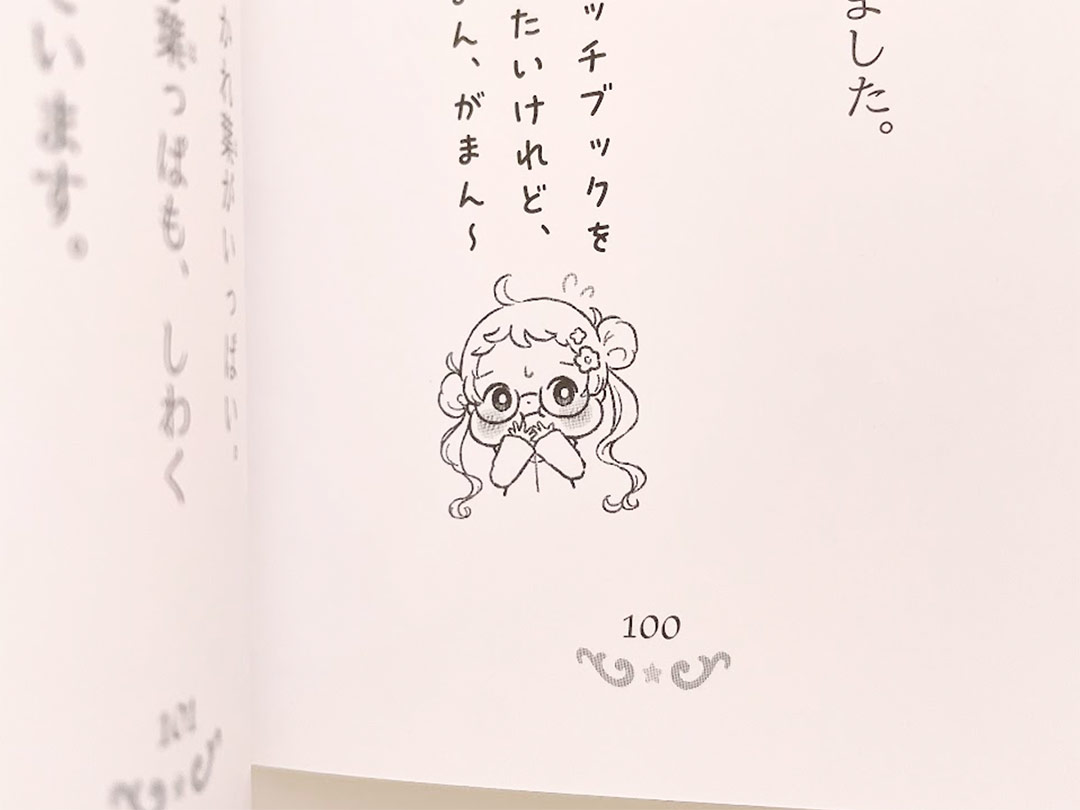 ました。
ッチブックを
たいけれど、
ん、がまん〜
100
かれ葉がいっぱい。
葉っぱも、しわく
います。
101